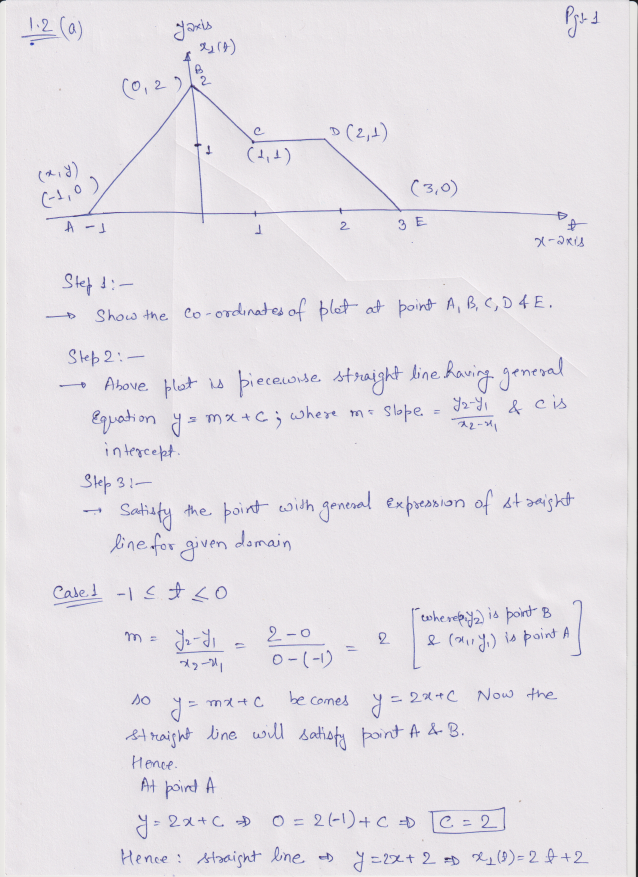 1.2 (a)
Pg:-1
y axis
x₁(t)
B
(0, 2)
2
C
D (2,1)
1
(1,1)
(x, y)
(-1, 0)
(3,0)
A -1
1
2
3 E
t
x-axis
Step 1:-
→ Show the co-ordinates of plot at point A, B, C, D & E.
Step 2:-
→ Above plot is piecewise straight line having general
Equation y = mx + C ; where m = slope = (y₂-y₁)/(x₂-x₁) & C is
intercept.
Step 3:-
→ Satisfy the point with general expression of straight
line for given domain
Case.1 -1 ≤ t ≤ 0
m = (y₂-y₁)/(x₂-x₁) = (2-0)/(0-(-1)) = 2 [where (x₂,y₂) is point B
& (x₁,y₁) is point A]
so y = mx + C becomes y = 2x+C Now the
straight line will satisfy point A & B.
Hence.
At point A
y = 2x + C ⇒ 0 = 2(-1) + C ⇒ C = 2
Hence : straight line ⇒ y = 2x + 2 ⇒ x₁(t) = 2t + 2